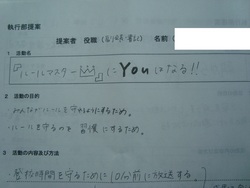 執行部提案
提案者 役職 名前
1 活動名
『ルールマスター』にYouはなる!!
2 活動の目的
・みんながルールを守れるようにするため。
・ルールを守るのを習慣にするため。
3 活動の内容及び方法
・登校時間を守るために10分前に放送する。